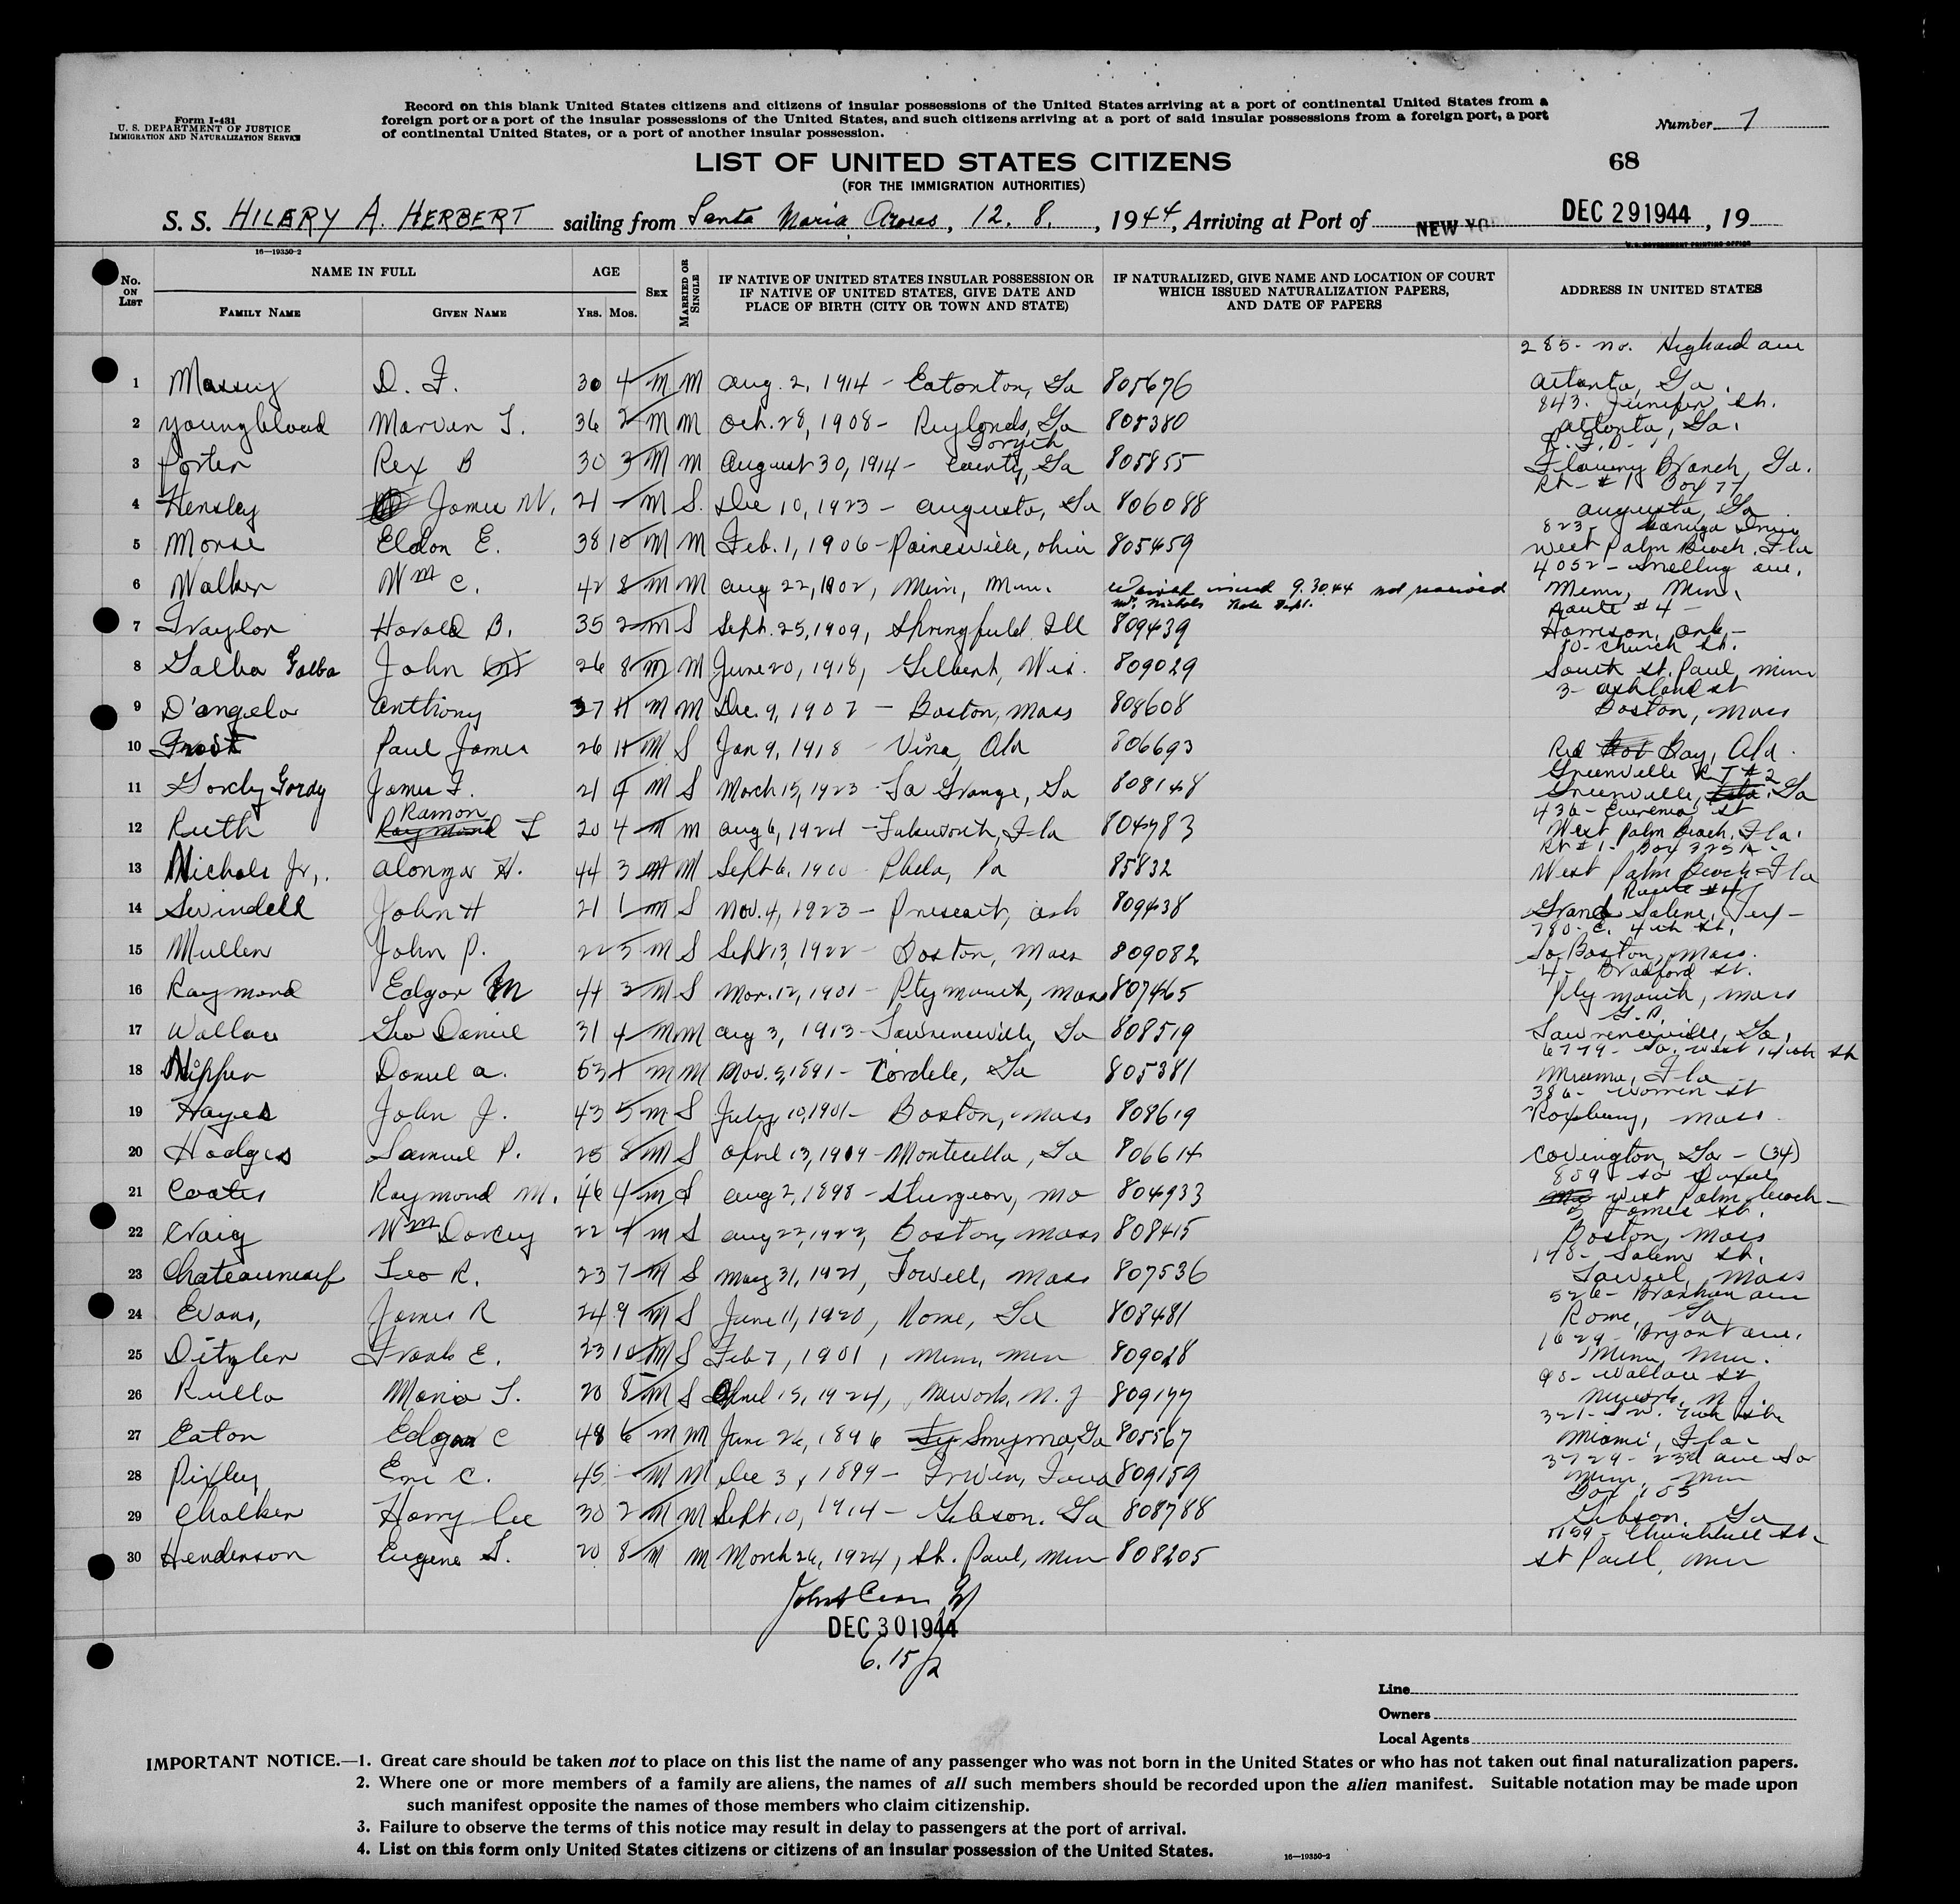 Form I-431
U. S. DEPARTMENT OF JUSTICE
IMMIGRATION AND NATURALIZATION SERVICE
Record on this blank United States citizens and citizens of insular possessions of the United States arriving at a port of continental United States from a
foreign port or a port of the insular possessions of the United States, and such citizens arriving at a port of said insular possessions from a foreign port, a port
of continental United States, or a port of another insular possession.
Number 7
LIST OF UNITED STATES CITIZENS
68
(FOR THE IMMIGRATION AUTHORITIES)
S. S. HILERY A. HERBERT sailing from Santa Maria, Azores, 12. 8. , 1944, Arriving at Port of NEW YORK DEC 29 1944 , 19
16—19350-2
U. S. GOVERNMENT PRINTING OFFICE
No. ON LIST
NAME IN FULL
FAMILY NAME
GIVEN NAME
AGE
YRS. MOS.
SEX
MARRIED OR SINGLE
IF NATIVE OF UNITED STATES INSULAR POSSESSION OR
IF NATIVE OF UNITED STATES, GIVE DATE AND
PLACE OF BIRTH (CITY OR TOWN AND STATE)
IF NATURALIZED, GIVE NAME AND LOCATION OF COURT
WHICH ISSUED NATURALIZATION PAPERS,
AND DATE OF PAPERS
ADDRESS IN UNITED STATES
285 - no. Highland ave
1 Massey D. F. 30 4 M M Aug. 2, 1914 - Eatonton, Ga 805676 Atlanta, Ga.
843 - Juniper St.
2 Youngblood Marvin T. 36 2 M M Oct. 28, 1908 - Ga 805380 Atlanta, Ga.
R. F. D. 1
3 Porter Rex B 30 3 M M August 30, 1914 - Forsyth County, Ga 805855 Flowery Branch, Ga.
Rt - #1 Box 77
4 Hensley James W. 21 - M S. Dec 10, 1923 - Augusta, Ga 806088 Augusta, Ga
823 - Drive
5 Morse Eldon E. 38 10 M M Feb. 1, 1906 - Painesville, Ohio 805459 West Palm Beach, Fla
4052 - Snelling ave.
6 Walker Wm C. 42 8 M M Aug 22, 1902, Minn, Minn. Waived issued 9.30.44 not received Minn, Minn.
Mr. Nichols State Dept.
Route #4 -
7 Traylor Harold B. 35 2 M S Sept. 25, 1909, Springfield Ill 809439 Harrison, Ark -
80 - Church St.
8 Galba Galba John (n) 26 8 M M June 20, 1918, Gilbert, Wis. 809029 South St. Paul, Minn
3 - Ashland St
9 D'Angelo Anthony 37 11 M M Dec. 9, 1907 - Boston, Mass 808608 Boston, Mass
10 Frost Paul James 26 11 M S Jan 9, 1918 - Vina, Ala 806693 Red Bay, Ala.
Greenville RT #2
11 Gordy Gordy James F. 21 9 M S March 15, 1923 - La Grange, Ga 808148 Greenville, Ga
436 - Eurenia St
12 Ruth Ramon Raymond L 20 4 M M Aug 6, 1924 - Lakeworth, Fla 804783 West Palm Beach, Fla.
Rt #1 - Box 325A -
13 Nichols Jr. Alonzo H. 44 3 M M Sept 6, 1900 Phila, Pa 85832 West Palm Beach Fla
Route #4
14 Swindell John H 21 1 M S Nov. 4, 1923 - Prescott, Ark 809438 Grand Saline, Tex -
780 - E. 4th St.
15 Mullen John P. 22 3 M S Sept 13, 1922 - Boston, Mass 809082 So. Boston, Mass.
4 - Bradford St.
16 Raymond Edgar M 44 2 M S Mar. 12, 1901 - Plymouth, Mass 807465 Plymouth, Mass
17 Wallace Leo Daniel 31 4 M M Aug 3, 1913 - Lawrenceville, Ga 808519 Lawrenceville, Ga.
6779 - So. West 14th St
18 Nipper Daniel A. 53 1 M M Nov. 5, 1891 - Cordele, Ga 805381 Miami, Fla
386 - Warren St
19 Hayes John J. 43 5 M S July 10, 1901 - Boston, Mass 808619 Roxbury, Mass.
20 Hodges Samuel P. 25 8 M S April 13, 1919 - Monticello, Ga 806614 Covington, Ga - (34)
859 So Dixie
21 Coates Raymond M. 46 4 M S Aug 2, 1898 - Sturgeon, Mo 804933 West Palm Beach -
5 James St.
22 Craig Wm Dorcey 22 4 M S Aug 22, 1922, Boston, Mass 808415 Boston, Mass
148 - Salem St.
23 Chateauneuf Leo R. 23 7 M S May 31, 1921, Lowell, Mass 807536 Lowell, Mass
526 - Branham ave
24 Evans, James R 24 9 M S June 11, 1920, Rome, Ga 808481 Rome, Ga
1629 - Bryant ave.
25 Ditzler Frank E. 23 10 M S Feb 7, 1901, Minn, Minn 809028 Minn, Minn.
90 - Wallace St
26 Rullo Mario T. 20 8 M S April 15, 1924, Newark, N. J 809177 Newark, N. J.
321 - S. W. St.
27 Eaton Edgar C 48 6 M M June 26, 1896 Smyrna, Ga 805567 Miami, Fla -
3729 - 23rd ave So
28 Pixley Eric C. 45 - M M Dec 3, 1899 - Irwin, Iowa 809159 Minn, Minn
Box 185
29 Chalker Harry Lee 30 2 M M Sept 10, 1914 - Gibson, Ga 808788 Gibson, Ga
1159 - Churchill St.
30 Henderson Eugene L. 20 8 M M March 26, 1924, St. Paul, Minn 808205 St Paul, Minn
DEC 30 1944
6. 15/2
Line
Owners
Local Agents
IMPORTANT NOTICE.—1. Great care should be taken not to place on this list the name of any passenger who was not born in the United States or who has not taken out final naturalization papers.
2. Where one or more members of a family are aliens, the names of all such members should be recorded upon the alien manifest. Suitable notation may be made upon
such manifest opposite the names of those members who claim citizenship.
3. Failure to observe the terms of this notice may result in delay to passengers at the port of arrival.
4. List on this form only United States citizens or citizens of an insular possession of the United States.
16—19350-2